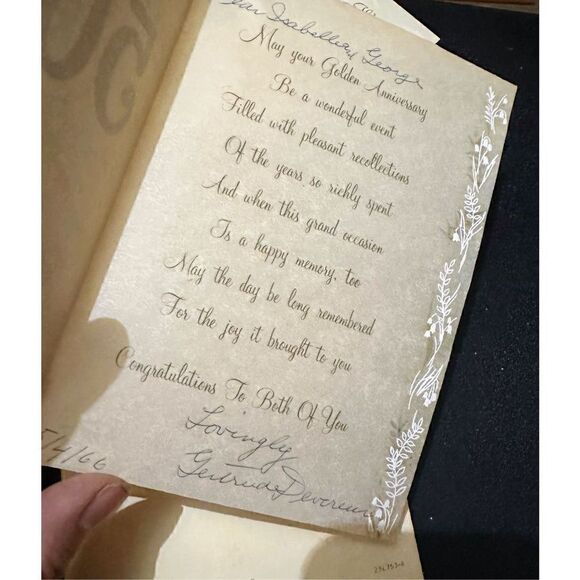 Isabelle & George
May your Golden Anniversary
Be a wonderful event
Filled with pleasant recollections
Of the years, so richly spent
And when this grand occasion
Is a happy memory, too
May the day be long remembered
For the joy it brought to you
Congratulations To Both Of You
Lovingly
Gertrude Devereux
5/4/66